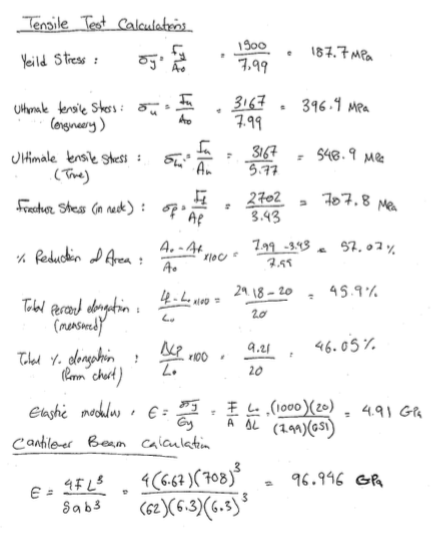 Tensile Test Calculations
Yeild Stress : σy = Fy/Ao = 1500/7.99 = 187.7 MPa
Ultimate tensile Stress : σu = Fu/Ao = 3167/7.99 = 396.4 MPa
(engineery)
Ultimate tensile stress : σtu = Fu/Au = 3167/5.77 = 548.9 MPa
(True)
Fracture Stress (in neck) : σf = Ff/Af = 2702/3.43 = 787.8 MPa
% Reduction of Area : Ao - Af/Ao x100 = 7.99 - 3.43/7.99 = 57.07%
Total Percent elongation : Lf - Lo/Lo x100 = 29.18 - 20/20 = 45.9%
(measured)
Total % elongation : ΔLP/Lo x100 = 9.21/20 = 46.05%
(from chart)
Elastic modulus , E = σy/εy = F/A Lo/ΔL = (1000)(20)/(7.99)(0.51) = 4.91 GPa
Cantilever Beam Calculation
E = 4FL³/δab³ = 4(6.67)(708)³/(62)(6.3)(6.3)³ = 96.946 GPa